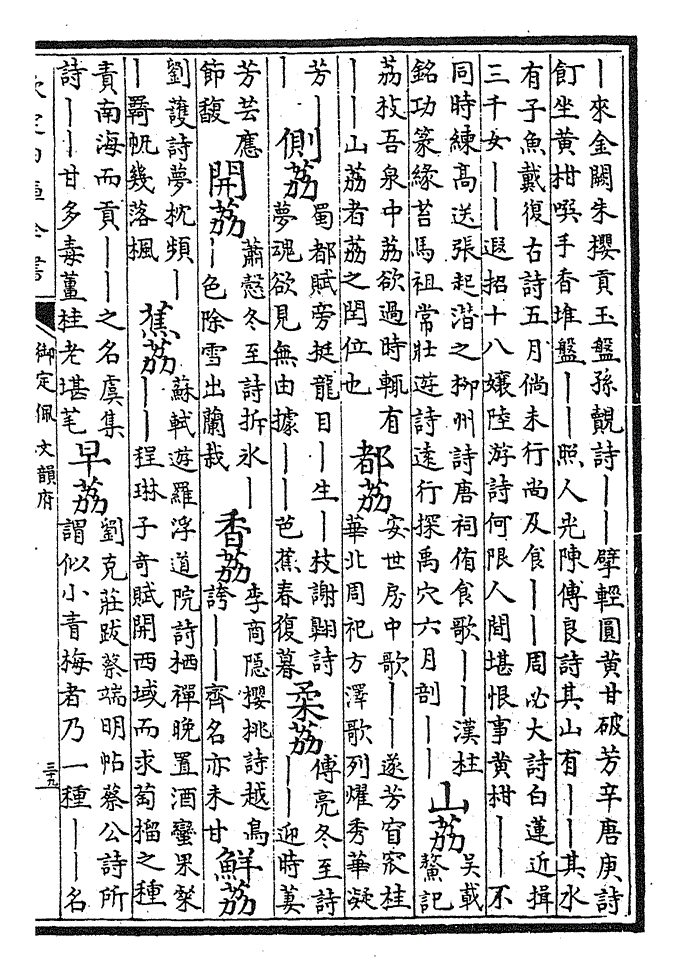 丨來金闕朱櫻貢玉盤孫覿詩丨丨擘輕圓黃甘破芳辛唐庚詩
飣坐黃柑噀手香堆盤丨丨照人光陳傅良詩其山有丨丨其水
有子魚戴復古詩五月倘未行尚及食丨丨周必大詩白蓮近揖
三千女丨丨遐招十八孃陸游詩何限人間堪恨事黃柑丨丨不
同時練高送張起潛之柳州詩唐祠侑食歌丨丨漢柱
銘功篆緣苔馬祖常壯遊詩遠行探禹穴六月剖丨丨
山荔
吳載
鼇記
荔枝吾泉中荔欲過時輒有
丨丨山荔者荔之閏位也
都荔
安世房中歌丨丨遂芳窅窊桂
華北周祀方澤歌列燿秀華凝
芳丨
丨
側荔
蜀都賦旁挺龍目丨生丨枝謝翺詩
夢魂欲見無由據丨丨芭蕉春復暮
柔荔
傅亮冬至詩
丨丨迎時萋
芳芸應
節馥
開荔
蕭愨冬至詩拆冰丨
丨色除雪出蘭栽
香荔
李商隱櫻桃詩越鳥
誇丨丨齊名亦未甘
鮮荔
劉護詩夢枕頻丨
丨帆幾落楓
蕉荔
蘇軾遊羅浮道院詩栖禪晚置酒蠻果粲
丨丨程琳子奇賦開西域而求萄榴之種
責南海而貢丨丨之名虞集
詩丨丨甘多毒薑桂老堪芼
早荔
劉克莊跋蔡端明帖蔡公詩所
謂似小青梅者乃一種丨丨名
欽定四庫全書
御定佩文韻府